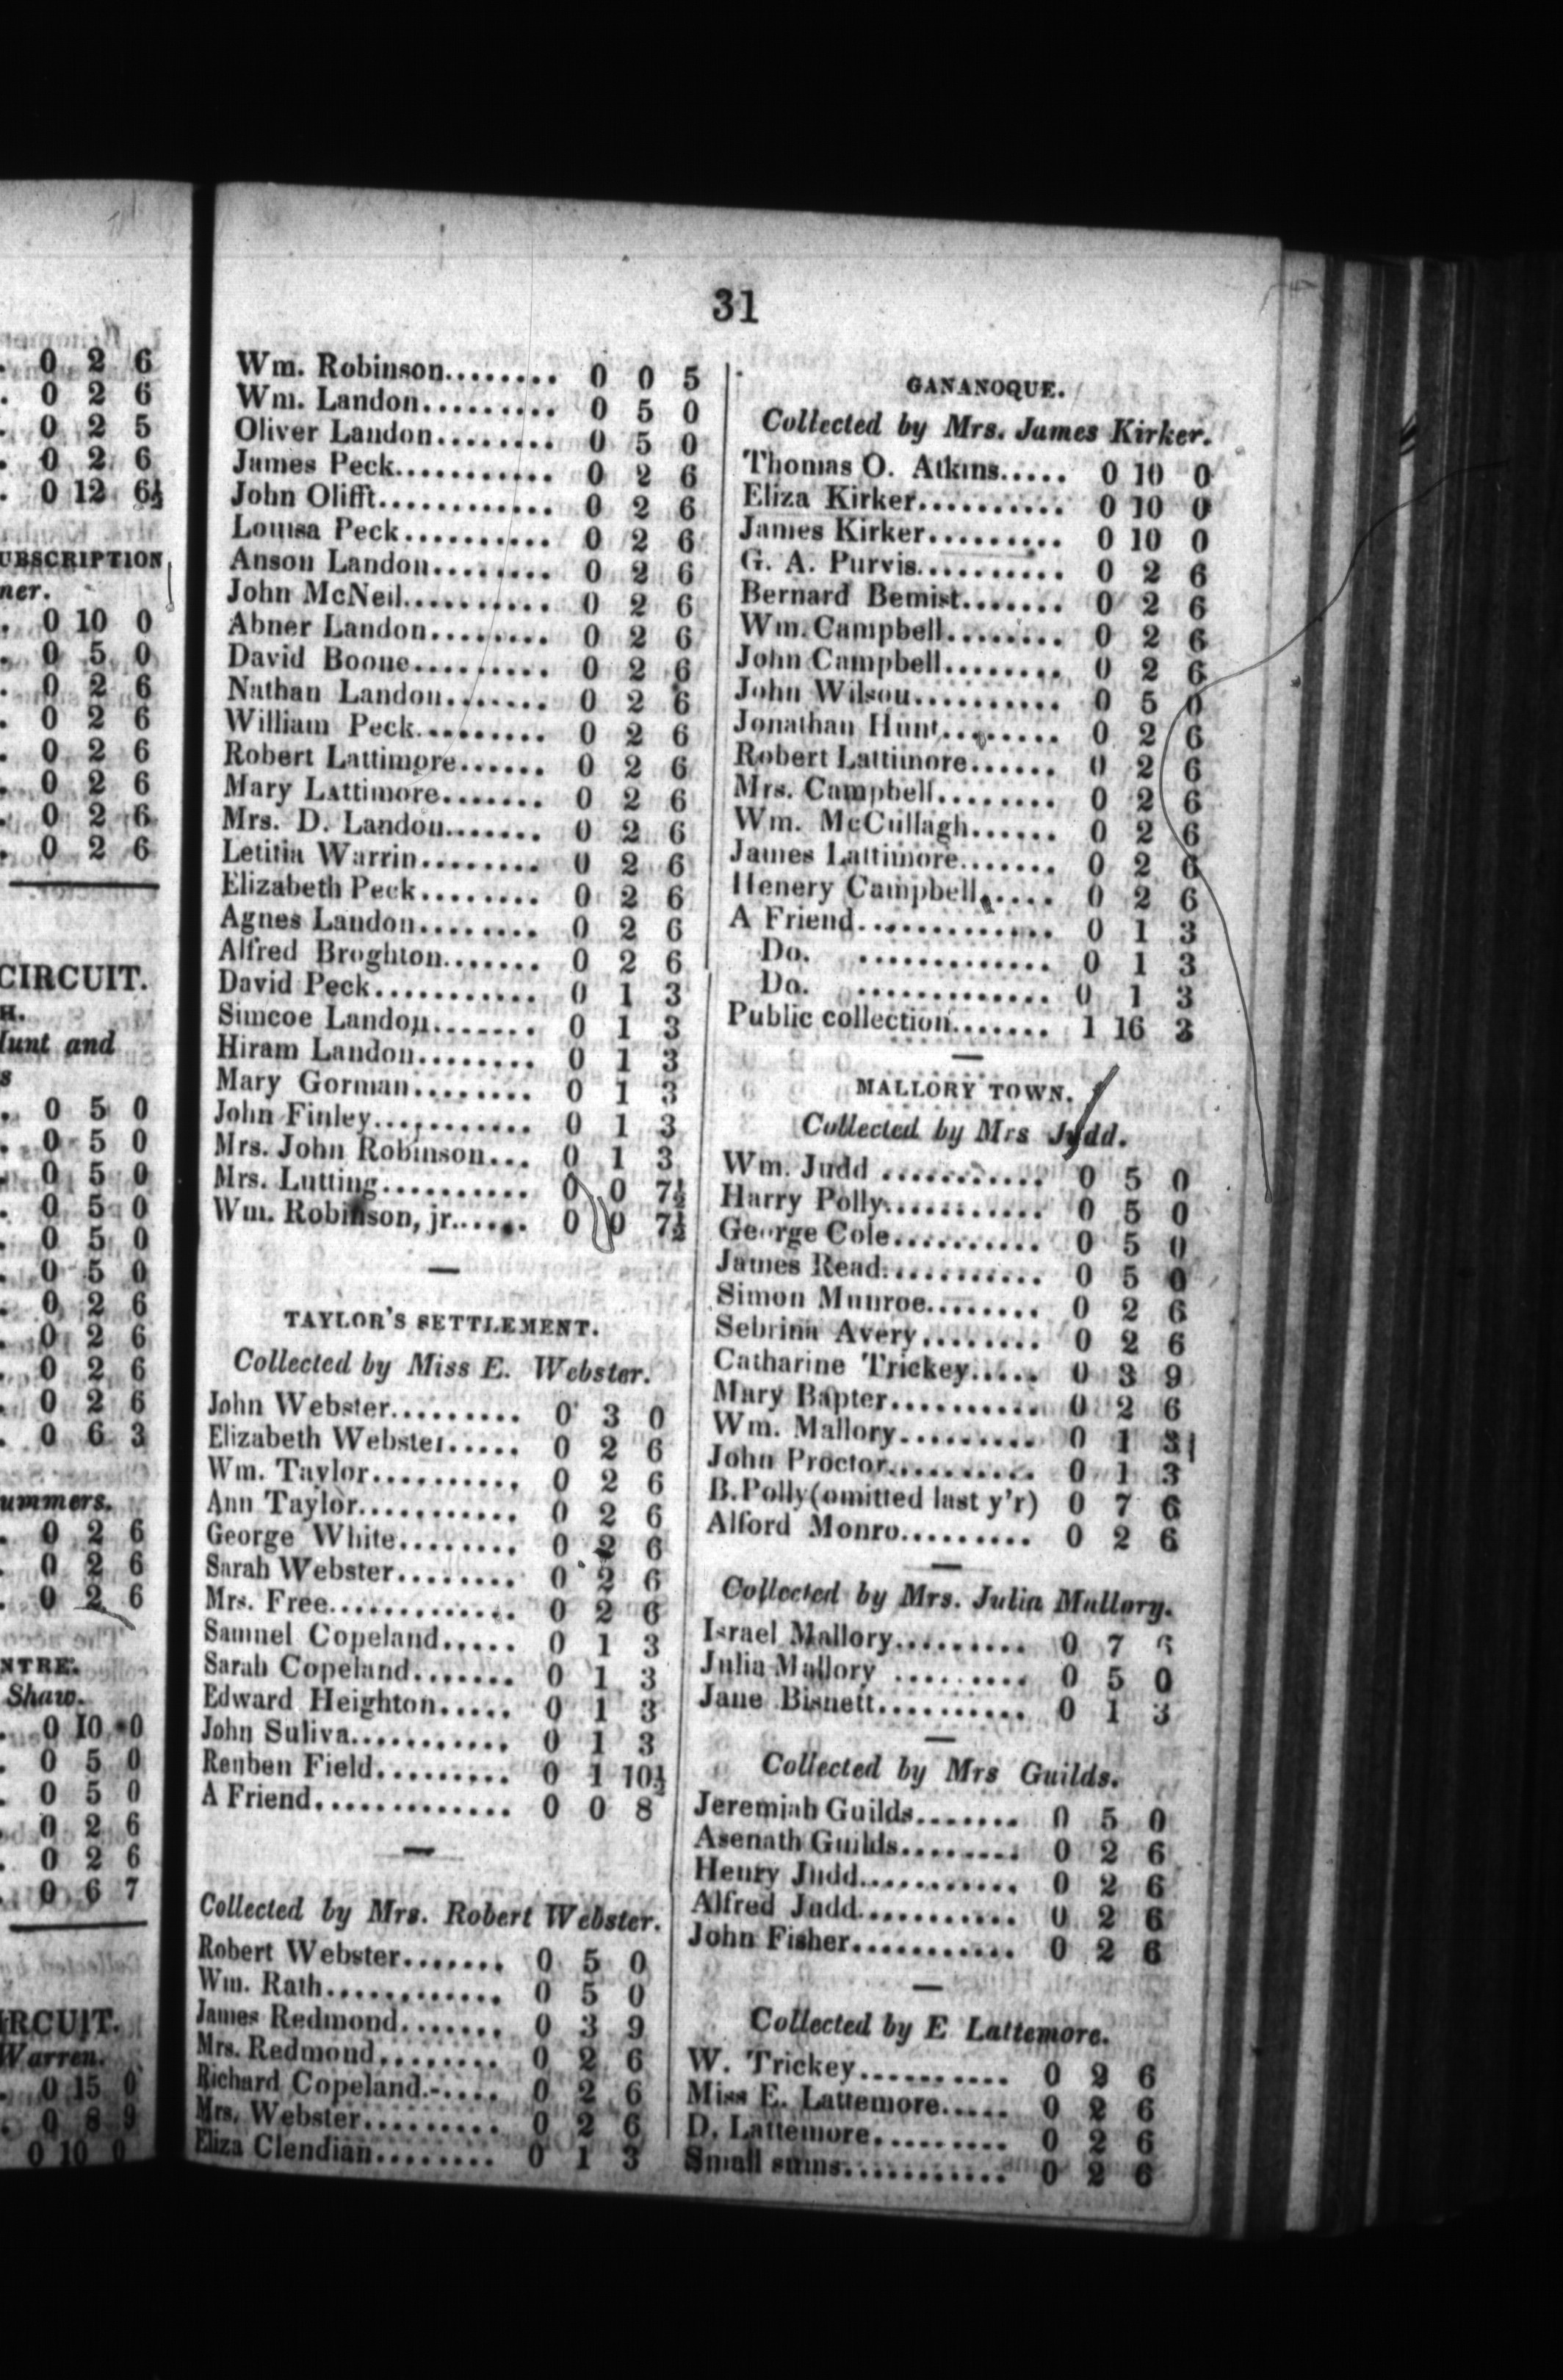 0 2 6
0 2 6
0 2 5
0 2 6
0 12 6½
UBSCRIPTION
ner.
0 10 0
0 5 0
0 2 6
0 2 6
0 2 6
0 2 6
0 2 6
0 2 6
CIRCUIT.
H.
Hunt and
s
0 5 0
0 5 0
0 5 0
0 5 0
0 5 0
0 5 0
0 2 6
0 2 6
0 2 6
0 2 6
0 6 3
ummers.
0 2 6
0 2 6
0 2 6
NTRE.
Shaw.
0 10 0
0 5 0
0 5 0
0 2 6
0 2 6
0 6 7
IRCUIT.
Warren.
0 15 0
0 8 9
0 10 0
31
Wm. Robinson........ 0 0 5
Wm. Landon.......... 0 5 0
Oliver Landon........ 0 5 0
James Peck........... 0 2 6
John Olifft............. 0 2 6
Louisa Peck.......... 0 2 6
Anson Landon........ 0 2 6
John McNeil.......... 0 2 6
Abner Landon........ 0 2 6
David Boone.......... 0 2 6
Nathan Landon....... 0 2 6
William Peck......... 0 2 6
Robert Lattimore...... 0 2 6
Mary Lattimore....... 0 2 6
Mrs. D. Landon....... 0 2 6
Letitia Warrin........ 0 2 6
Elizabeth Peck........ 0 2 6
Agnes Landon........ 0 2 6
Alfred Broghton....... 0 2 6
David Peck........... 0 1 3
Simcoe Landon....... 0 1 3
Hiram Landon........ 0 1 3
Mary Gorman........ 0 1 3
John Finley........... 0 1 3
Mrs. John Robinson... 0 1 3
Mrs. Lutting.......... 0 0 7½
Wm. Robinson, jr...... 0 0 7½
TAYLOR'S SETTLEMENT.
Collected by Miss E. Webster.
John Webster......... 0 3 0
Elizabeth Webster..... 0 2 6
Wm. Taylor.......... 0 2 6
Ann Taylor........... 0 2 6
George White........ 0 2 6
Sarah Webster........ 0 2 6
Mrs. Free............. 0 2 6
Samuel Copeland..... 0 1 3
Sarah Copeland....... 0 1 3
Edward Heighton..... 0 1 3
John Suliva........... 0 1 3
Reuben Field......... 0 1 10½
A Friend............. 0 0 8
Collected by Mrs. Robert Webster.
Robert Webster....... 0 5 0
Wm. Rath............ 0 5 0
James Redmond....... 0 3 9
Mrs. Redmond........ 0 2 6
Richard Copeland..... 0 2 6
Mrs. Webster......... 0 2 6
Eliza Clendian........ 0 1 3
GANANOQUE.
Collected by Mrs. James Kirker.
Thomas O. Atkins..... 0 10 0
Eliza Kirker.......... 0 10 0
James Kirker......... 0 10 0
G. A. Purvis.......... 0 2 6
Bernard Bemist....... 0 2 6
Wm. Campbell........ 0 2 6
John Campbell........ 0 2 6
John Wilson.......... 0 5 0
Jonathan Hunt........ 0 2 6
Robert Lattimore...... 0 2 6
Mrs. Campbell........ 0 2 6
Wm. McCullagh...... 0 2 6
James Lattimore....... 0 2 6
Henery Campbell..... 0 2 6
A Friend............. 0 1 3
Do. ............. 0 1 3
Do. ............. 0 1 3
Public collection....... 1 16 3
MALLORY TOWN.
Collected by Mrs Judd.
Wm. Judd ........... 0 5 0
Harry Polly........... 0 5 0
George Cole.......... 0 5 0
James Read........... 0 5 0
Simon Munroe........ 0 2 6
Sebrina Avery........ 0 2 6
Catharine Trickey..... 0 3 9
Mary Bapter.......... 0 2 6
Wm. Mallory......... 0 1 3
John Proctor.......... 0 1 3
B. Polly (omitted last y'r) 0 7 6
Alford Monro......... 0 2 6
Collected by Mrs. Julia Mallory.
Israel Mallory......... 0 7 6
Julia Mallory ......... 0 5 0
Jane Bisnett.......... 0 1 3
Collected by Mrs Guilds.
Jeremiah Guilds....... 0 5 0
Asenath Guilds........ 0 2 6
Henry Judd........... 0 2 6
Alfred Judd........... 0 2 6
John Fisher........... 0 2 6
Collected by E Lattemore.
W. Trickey.......... 0 2 6
Miss E. Lattemore..... 0 2 6
D. Lattemore......... 0 2 6
Small sums........... 0 2 6